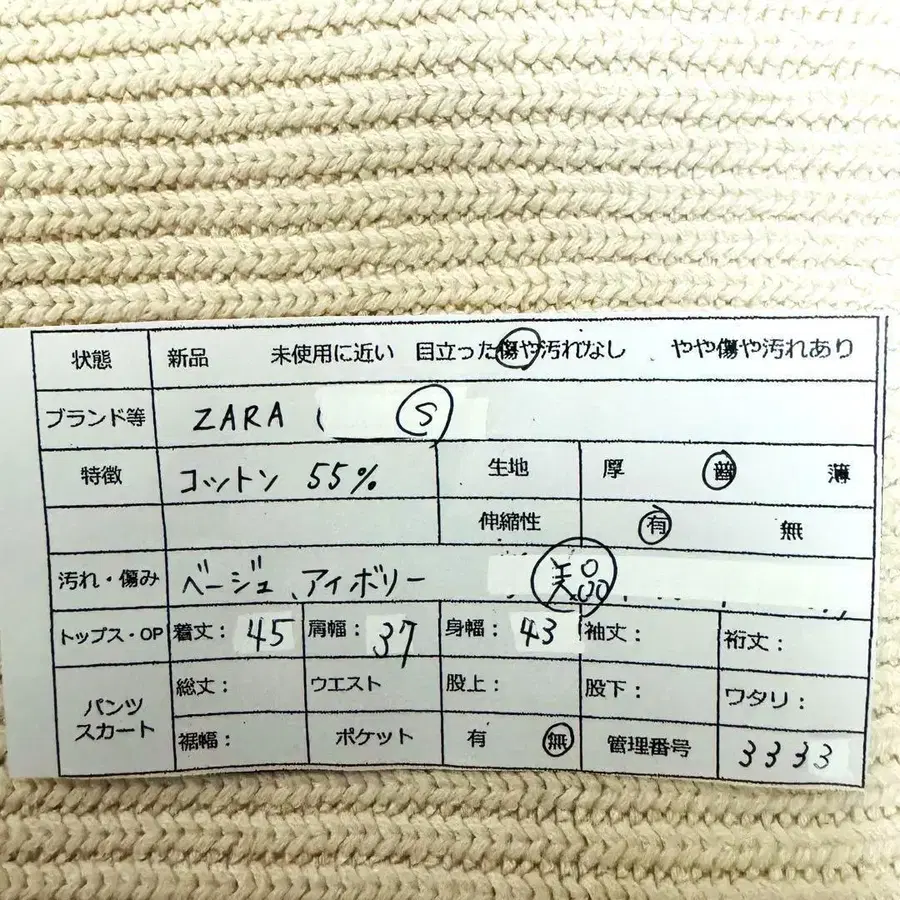 状態 新品 未使用に近い 目立った傷や汚れなし やや傷や汚れあり
ブランド等 ZARA ( S
特徴 コットン 55% 生地 厚 普 薄
伸縮性 有 無
汚れ・傷み ベージュ、アイボリー 美品
トップス・OP 着丈: 45 肩幅: 37 身幅: 43 袖丈: 裄丈:
パンツ スカート 総丈: ウエスト 股上: 股下: ワタリ:
裾幅: ポケット 有 無 管理番号 3333